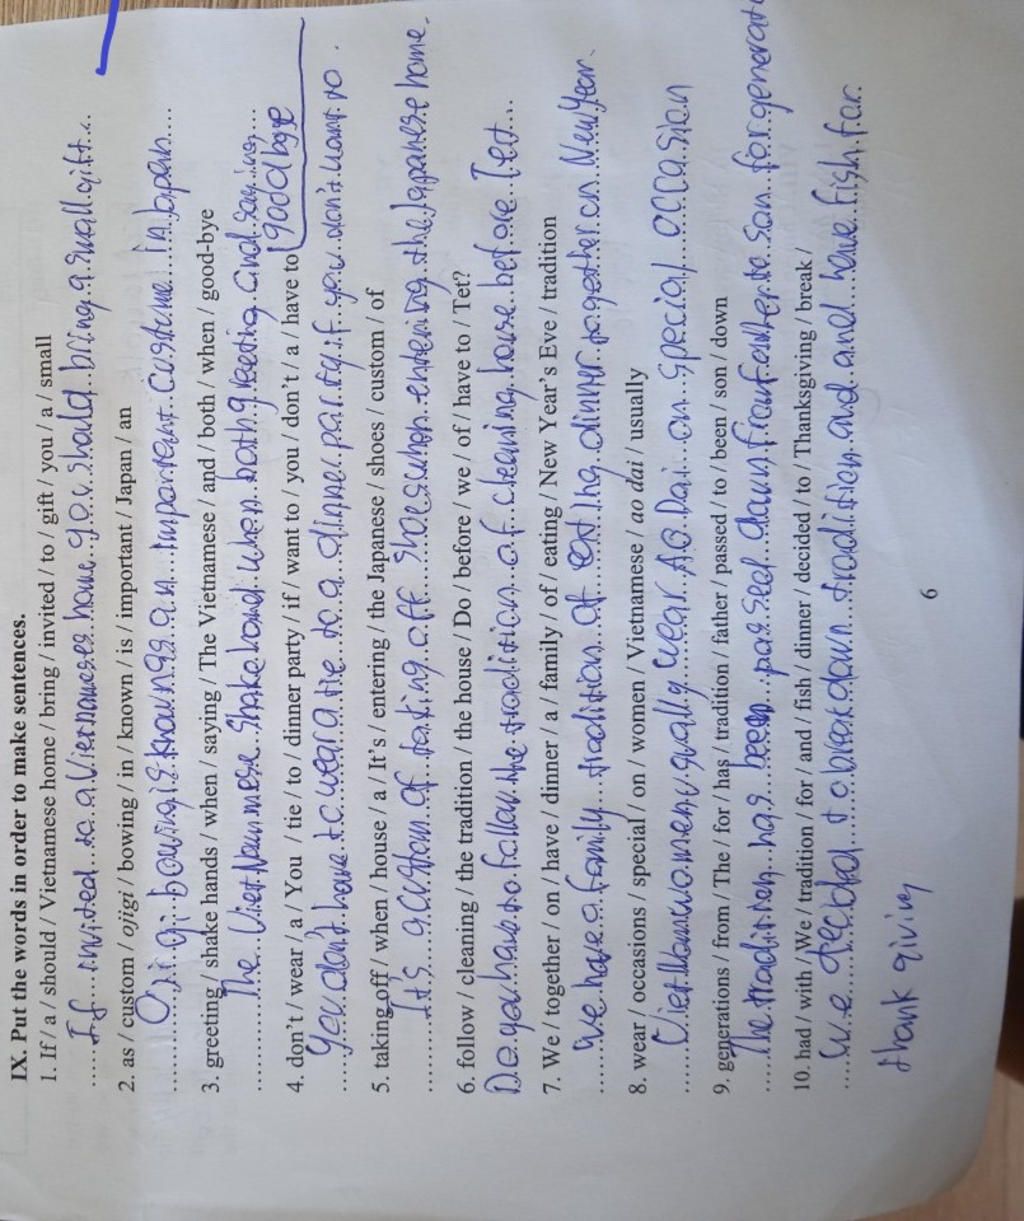 IX. Put the words in order to make sentences.
1. If / a / should / Vietnamese home / bring / invited / to / gift / you / a / small
If invited to a Vietnameses home you should bring a small gift
2. as / custom / ojigi / bowing / in / known / is / important / Japan / an
Ojigi bowing is known as an important custume in Japan
3. greeting / shake hands / when / saying / The Vietnamese / and / both / when / good-bye
The Vietnamese shake hand when both greeting and saying
good bye
4. don't / wear / a / You / tie / to / dinner party / if / want to / you / don't / a / have to
You don't have to wear a tie to a dinner party if you don't want to.
5. taking off / when / house / a / It's / entering / the Japanese / shoes / custom / of
It's a custom of taking off shoes when entering the Japanese home.
6. follow / cleaning / the tradition / the house / Do / before / we / of / have to / Tet?
Do you have to follow the tradition of cleaning house before Tet
7. We / together / on / have / dinner / a / family / of / eating / New Year's Eve / tradition
We have a family tradition of eating dinner together on New Year
8. wear / occasions / special / on / women / Vietnamese / ao dai / usually
Viet Nam women usually wear Ao Dai on special occasion
9. generations / from / The / for / has / tradition / father / passed / to / been / son / down
The tradition has been passed down from father to son for generat
10. had / with / We / tradition / for / and / fish / dinner / decided / to / Thanksgiving / break /
We decided to break down tradition and and have fish for
thank giving
6